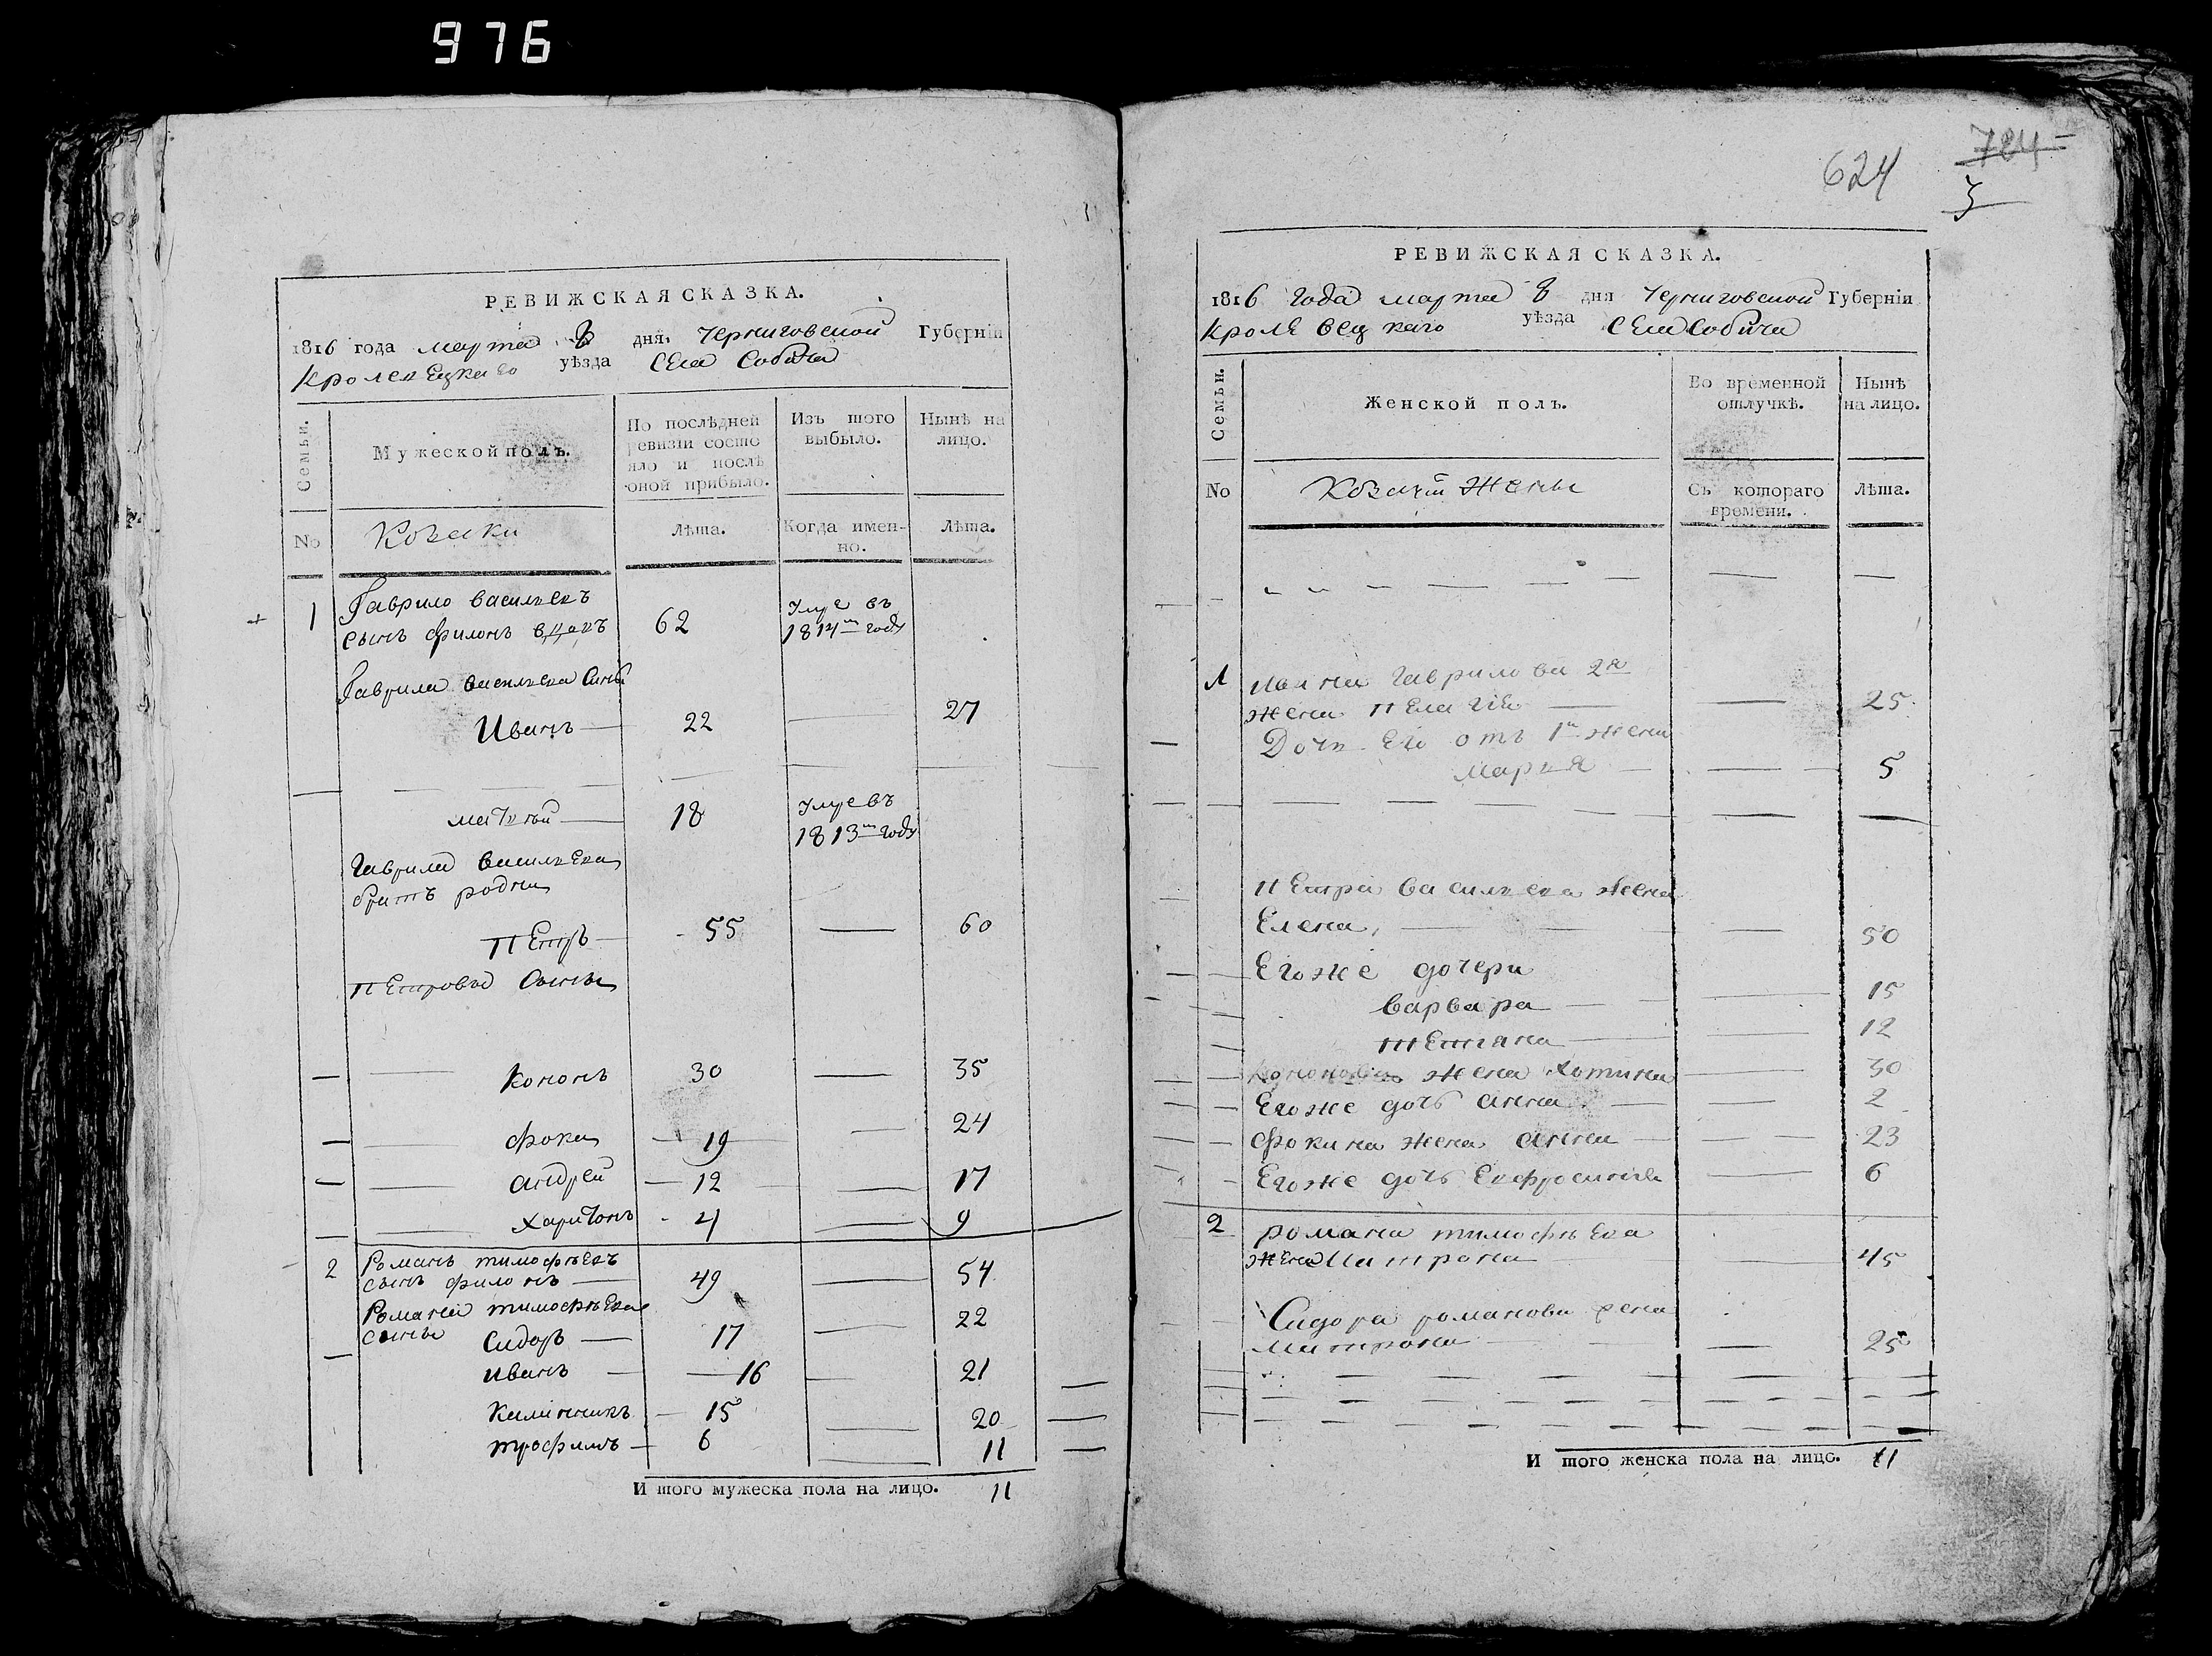 976
РЕВИЖСКАЯ СКАЗКА.
1816 года марта 8 дня Черниговской Губерніи
Кролевецкаго уѣзда села Собича
Семьи.
Мужеской полъ.
По послѣдней ревизіи состояло и послѣ оной прибыло.
Изъ того выбыло.
Нынѣ на лицо.
No
Козаки
Лѣта.
Когда именно.
Лѣта.
1 Гаврило васильевъ
сынъ филонъ 62 умре въ 1814м году
Гаврила васильева сыны
Иванъ 22 27
матвѣй 18 умре въ 1813м году
Гаврила васильева
братъ родны
пЕтръ 55 60
пЕтровы сыны
Кононъ 30 35
фока 19 24
андрей 12 17
харитонъ 4 9
2 Романъ тимофѣевъ
сынъ филонъ 49 54
Романа тимофѣева
сыны сидоръ 17 22
иванъ 16 21
Калінникъ 15 20
трофимъ 6 11
И того мужеска пола на лицо. 11
624
784
3
РЕВИЖСКАЯ СКАЗКА.
1816 года марта 8 дня Черниговской Губерніи
Кролевецкаго уѣзда села Собича
Семьи.
Женской полъ.
Во временной отлучкѣ.
Нынѣ на лицо.
No
Козачіи жены
Съ котораго времени.
Лѣта.
1 Ивана Гаврилова 2я
жена пЕлагіЯ 25
Дочь Его отъ 1й жены
Марья 5
пЕтра васильева жена
Елена 50
Егоже дочери
варвара 15
тЕтіяна 12
жена хотина 30
Егоже дочь анна 2
фокина жена анна 23
Егоже дочь Ефросинія 6
2 романа тимофѣева
жена Матрона 45
Сидора романова жена
Матрона 25
И того женска пола на лицо. 11